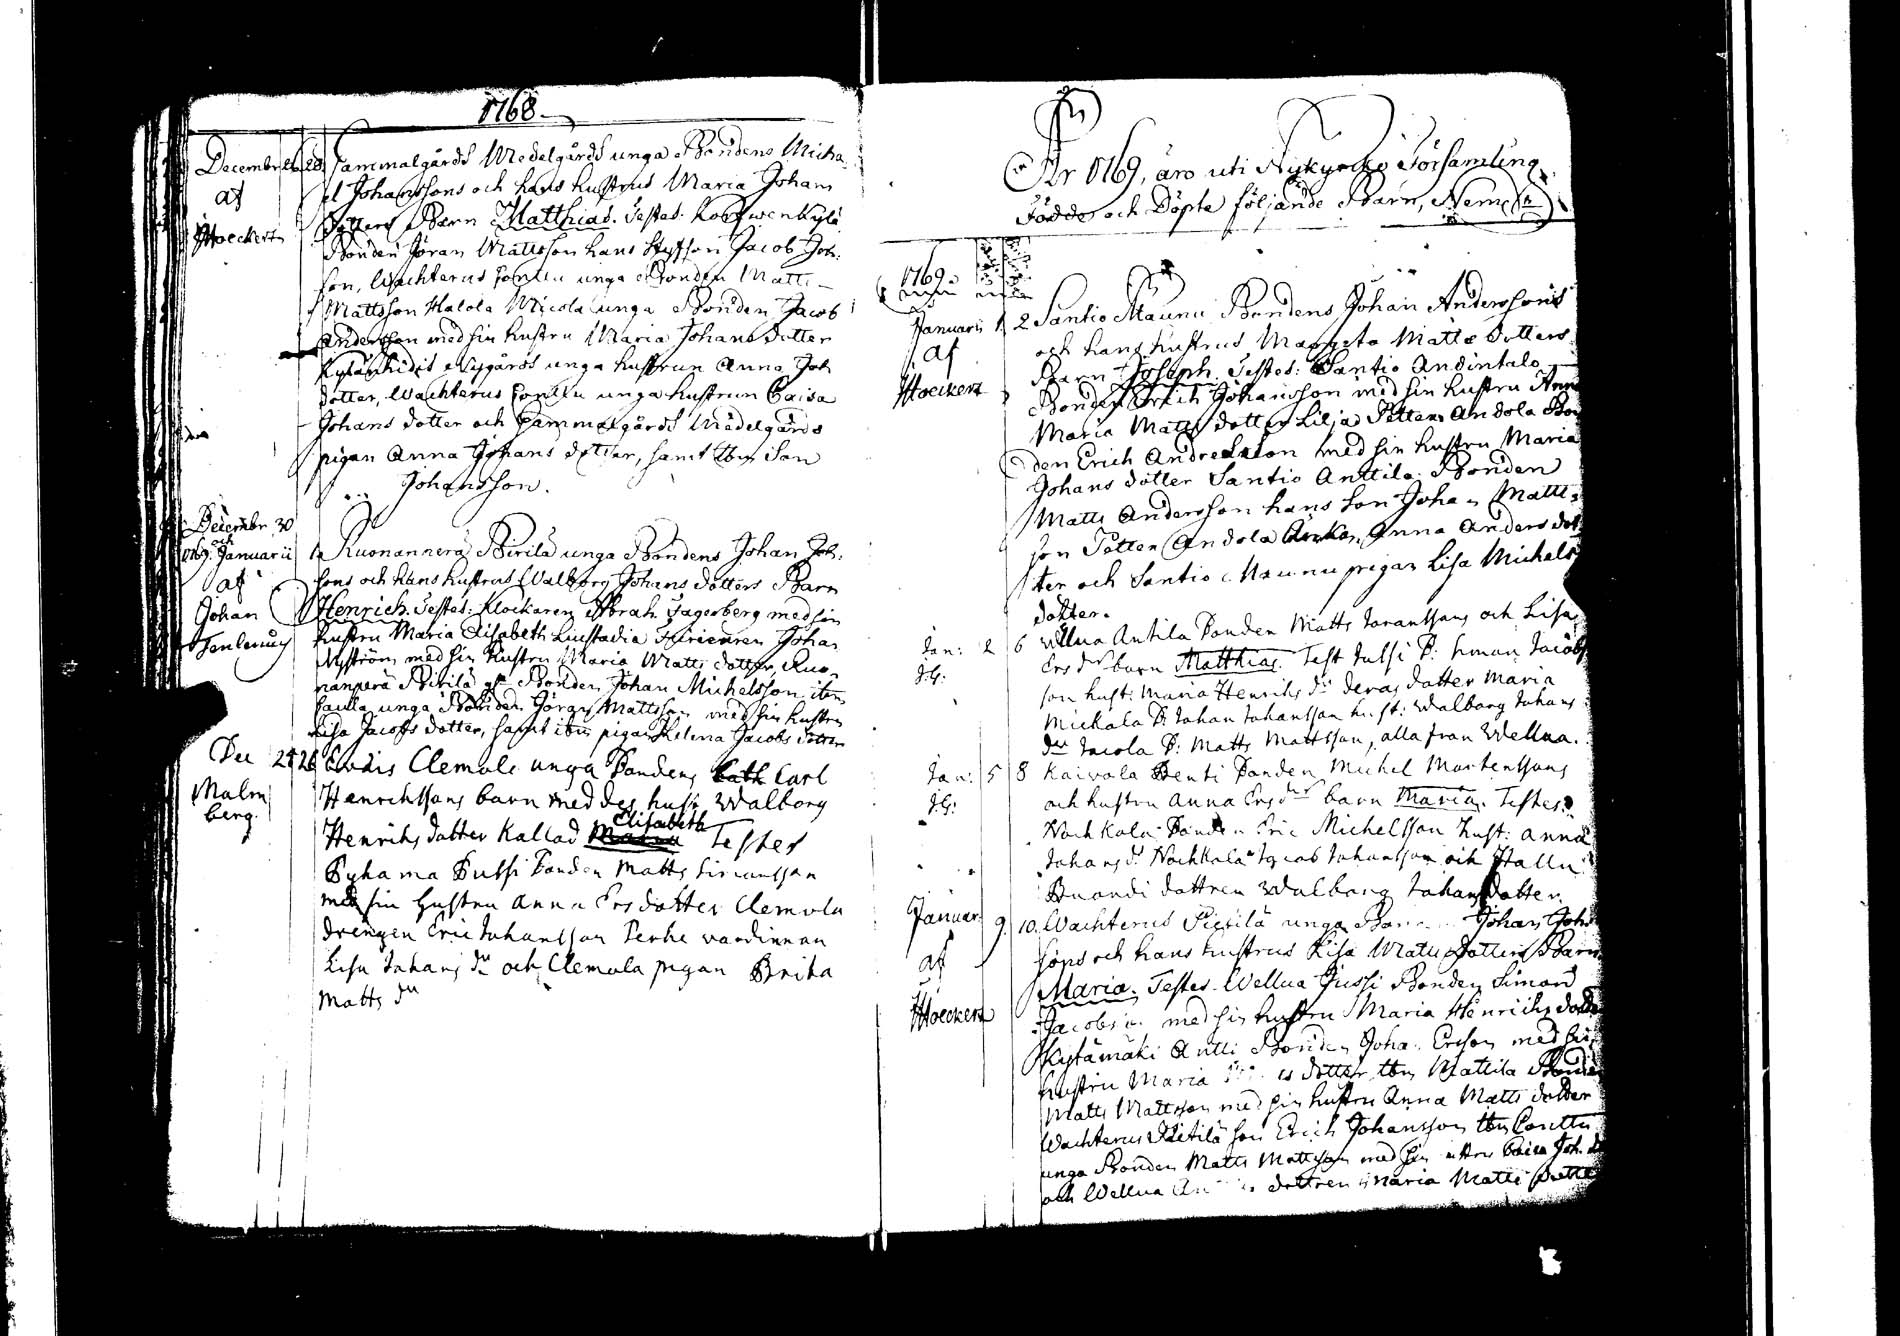 1768
Decembr 26 28 Gammalgårds Medelgårds unga Bondens Micha
af el Johanssons och hans hustrus Maria Johans
Hoeckert dotters Barn Matthias. Testes.
Bonden Jöran Mattsson hans Styfson Jacob Joh.
son, Wachterus Conttu unga Bonden Matts
Mattsson Halola Micola unga Bonden Jacob
Andersson med sin hustru Maria Johans dotter
Nygårds unga hustrun Anna Joh
dotter, Wachterus Conttu unga hustrun Caisa
Johans dotter och Gammalgårds Medelgårds
pigan Anna Johans dotter, samt
Johansson.
Decembr. 30
och
1769. Januarii 1 Kuonanperä Pirilä unga Bondens Johan Joh.
af sons och hans hustrus Walborg Johans dotters Barn
Johan Henrich. Testes: Klockaren Abrah. Fagerberg med sin
Tenlenius hustru Maria Elisabeth Johan
Nyström med sin hustru Maria Matts dotter, Kuo
nanperä Pirilä gl. Bonden Johan Michelsson item
unga Bonden Jöran Mattsson med sin hustru
Lisa Jacobs dotter, samt pigan Helena Jacobs dotter
Dec 24 26 Clemola unga Bondens Carl
Malm Henrichssons barn med des hust Walborg
berg. Henrichs dotter kallad Elisabeth Testes
Pyhama Pussi Bonden Matts Simonsson
med sin hustru Anna Ersdotter Clemola
drengen Eric Johansson Perhe vardinnan
Lisa Johans dr och Clemola pigan Brita
Matts dr
År 1769, äro uti Nykyrcko Församling
Födde och Döpte följande Barn, Nemln
1769.
Januarii 1 2 Santio Maunu Bondens Johan Anderssons
af och hans hustrus Margeta Matts dotters
Hoeckert Barn Joseph. Testes: Santio Andintalo
Bonden Erich Johansson med sin hustru Anna
Maria Matts dotter Lilja Petter Andola Bon
den Erich Andersson med sin hustru Maria
Johans dotter Santio Anttila Bonden
Matts Andersson hans son Johan Matts
son Petter Andola Änkan Anna Anders dot
ter och Santio Maunu pigan Lisa Michels
dotter.
Jan: 2 6 Wellua Antila Bonden Matts och Lisa
J.G: Ers dr barn Matthias. Test Jussi B: Simon Jacobs
son hust: Maria Henrichs dr deras dotter Maria
Mickola B: Johan Johansson hust: Walborg Johans
dr Jacola B: Matts Mattsson, alla från Wellua.
Jan: 5 8 Kaivola Penti Bonden Michel Mortenssons
J.G: och hustru Anna Ers dr barn Maria. Testes:
Nochkola Bonden Eric Michelsson hust: Anna
Johans dr Nochkala Jacob Johansson och Hallu
Buandi dottren Walborg Johans dotter.
Januar. 9. 10. Wachterus Pietilä unga Johan Johs
af sons och hans hustrus Lisa Matts dotters Barn
Hoeckert Maria. Testes. Wellua Jussi Bonden Simon
Jacobs n. med sin hustru Maria Henrichs dotter
Kytämäki Antti Bonden Joha. Ersson med sin
hustru Maria dotter, Mattila Bonden
Matts Mattsson med sin hustru Anna Matts dotter
Wachterus Pietilä son Erich Johansson Conttu
unga Bonden Matts Mattsson med sin Caisa Joh. d
och Wellua dottren Maria Matts dotter